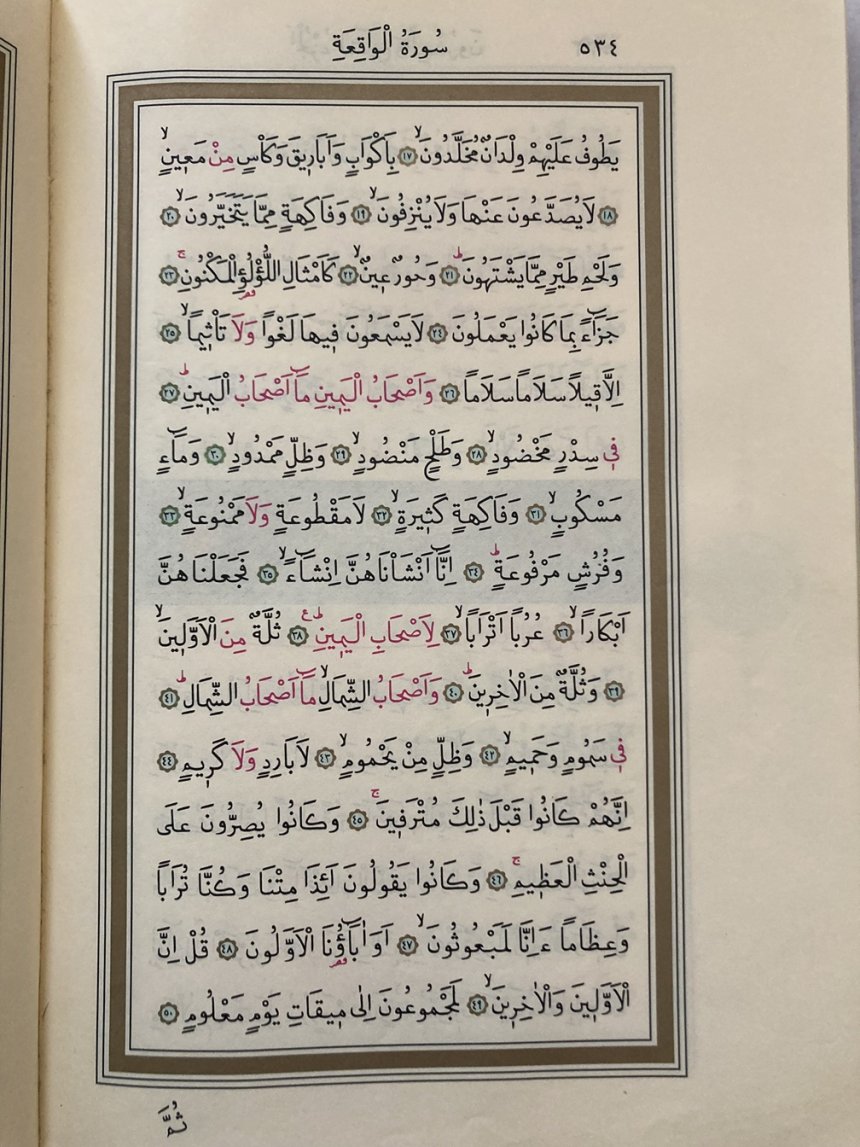 سُورَةُ الْوَاقِعَةِ ٥٣٤
يَطُوفُ عَلَيْهِمْ وِلْدَانٌ مُخَلَّدُونَۙ ﴿١٧﴾ بِاَكْوَابٍ وَاَبَارٖيقَ وَكَأْسٍ مِنْ مَعٖينٍۙ
﴿١٨﴾ لَا يُصَدَّعُونَ عَنْهَا وَلَا يُنْزِفُونَۙ ﴿١٩﴾ وَفَاكِهَةٍ مِمَّا يَتَخَيَّرُونَۙ ﴿٢٠﴾
وَلَحْمِ طَيْرٍ مِمَّا يَشْتَهُونَؕ ﴿٢١﴾ وَحُورٌ عٖينٌۙ ﴿٢٢﴾ كَاَمْثَالِ اللُّؤْلُؤِ الْمَكْنُونِۚ ﴿٢٣﴾
جَزَٓاءً بِمَا كَانُوا يَعْمَلُونَ ﴿٢٤﴾ لَا يَسْمَعُونَ فٖيهَا لَغْوًا وَلَا تَأْثٖيمًاۙ ﴿٢٥﴾
اِلَّا قٖيلًا سَلَامًا سَلَامًا ﴿٢٦﴾ وَاَصْحَابُ الْيَمٖينِ مَٓا اَصْحَابُ الْيَمٖينِؕ ﴿٢٧﴾
فٖي سِدْرٍ مَخْضُودٍۙ ﴿٢٨﴾ وَطَلْحٍ مَنْضُودٍۙ ﴿٢٩﴾ وَظِلٍّ مَمْدُودٍۙ ﴿٣٠﴾ وَمَٓاءٍ
مَسْكُوبٍۙ ﴿٣١﴾ وَفَاكِهَةٍ كَثٖيرَةٍۙ ﴿٣٢﴾ لَا مَقْطُوعَةٍ وَلَا مَمْنُوعَةٍۙ ﴿٣٣﴾
وَفُرُشٍ مَرْفُوعَةٍؕ ﴿٣٤﴾ اِنَّٓا اَنْشَأْنَاهُنَّ اِنْشَٓاءًۙ ﴿٣٥﴾ فَجَعَلْنَاهُنَّ
اَبْكَارًاۙ ﴿٣٦﴾ عُرُبًا اَتْرَابًاۙ ﴿٣٧﴾ لِاَصْحَابِ الْيَمٖينِؕ ع ﴿٣٨﴾ ثُلَّةٌ مِنَ الْاَوَّلٖينَۙ
﴿٣٩﴾ وَثُلَّةٌ مِنَ الْاٰخِرٖينَؕ ﴿٤٠﴾ وَاَصْحَابُ الشِّمَالِۙ مَٓا اَصْحَابُ الشِّمَالِؕ ﴿٤١﴾
فٖي سَمُومٍ وَحَمٖيمٍۙ ﴿٤٢﴾ وَظِلٍّ مِنْ يَحْمُومٍۙ ﴿٤٣﴾ لَا بَارِدٍ وَلَا كَرٖيمٍ ﴿٤٤﴾
اِنَّهُمْ كَانُوا قَبْلَ ذٰلِكَ مُتْرَفٖينَۚ ﴿٤٥﴾ وَكَانُوا يُصِرُّونَ عَلَى
الْحِنْثِ الْعَظٖيمِۚ ﴿٤٦﴾ وَكَانُوا يَقُولُونَ اَئِذَا مِتْنَا وَكُنَّا تُرَابًا
وَعِظَامًا ءَاِنَّا لَمَبْعُوثُونَۙ ﴿٤٧﴾ اَوَ اٰبَٓاؤُنَا الْاَوَّلُونَ ﴿٤٨﴾ قُلْ اِنَّ
الْاَوَّلٖينَ وَالْاٰخِرٖينَۙ ﴿٤٩﴾ لَمَجْمُوعُونَ اِلٰى مٖيقَاتِ يَوْمٍ مَعْلُومٍ ﴿٥٠﴾
ثُمَّ